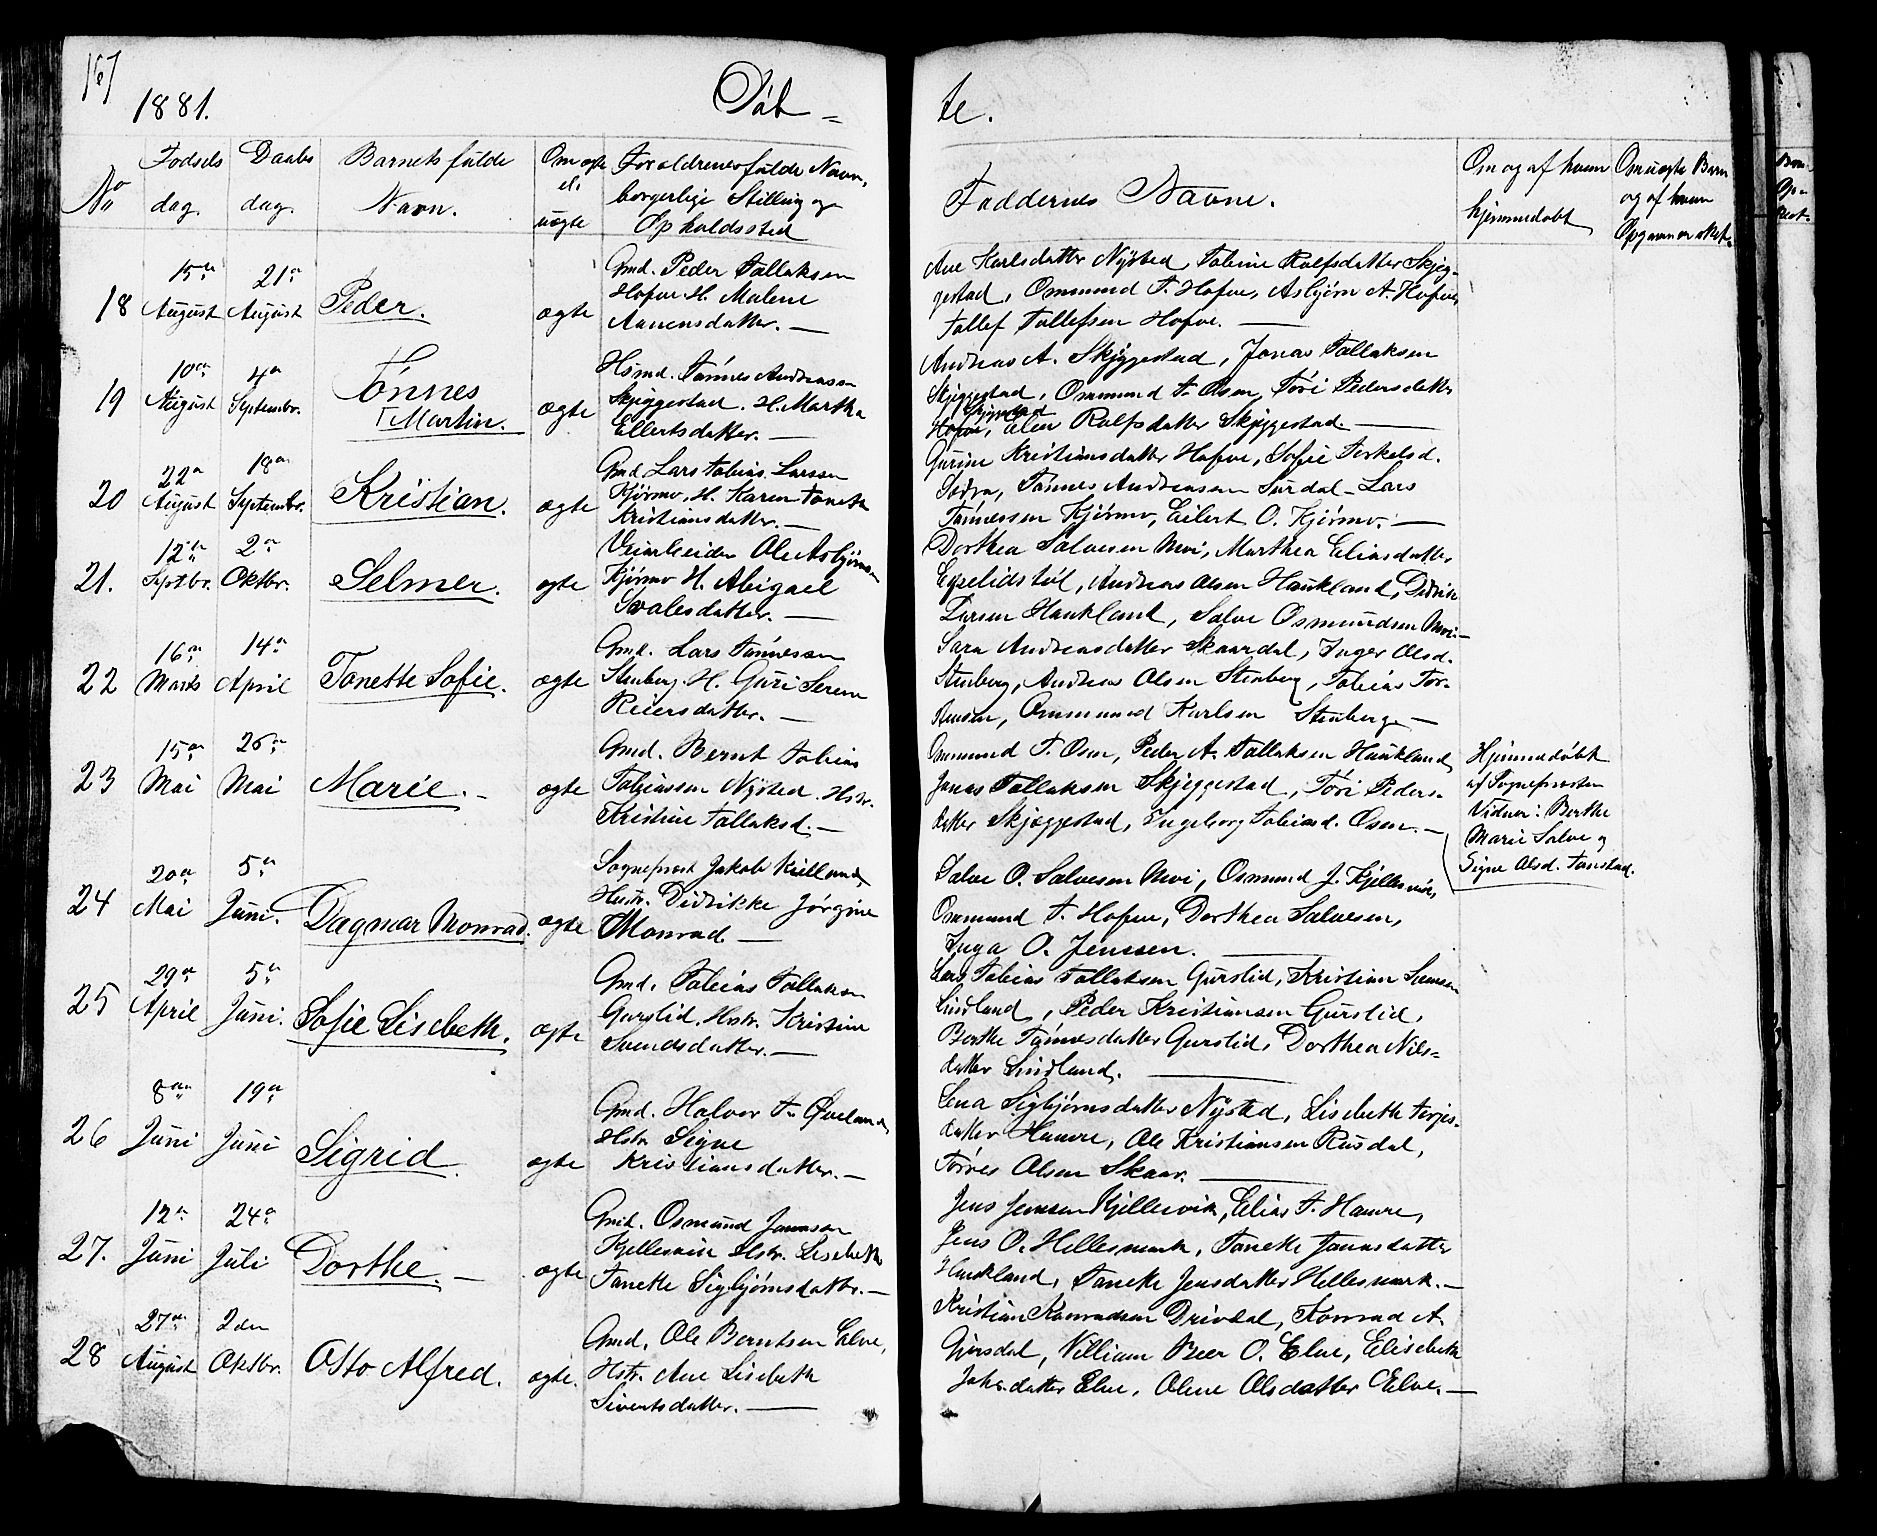 167
1881. Døb = te.
No
Fødsels dag.
Daabs dag.
Barnets fulde Navn.
Om ægte el. uægte
Forældrenes fulde Navn, borgerlige Stilling og Opholdssted
Faddernes Navne.
Om og af hvem hjemmedøbt
Om uægte Barn og af hvem Opgaven er sket.
18 15de August 21de August Peder. ægte
Gmd. Peder Tollaksen
Hofve H. Malene
Aanensdatter. —
Ane Karlsdatter Nysted, Tobine Rolfsdatter Skjeg-
gestad, Ommund T. Hofve, Asbjørn A. Hofve,
Tollef Tollefsen Hofve. —
19 10de August 4de Septembr. Tønnes Martin. ægte
Hsmd. Tønnes Andreassen
Skjeggestad. H. Martha
Ellertsdatter. —
Andreas A. Skjeggestad, Jonas Tollaksen
Skjeggestad, Ommund T. Osen, Tøri Pedersdatter
Skjeggestad
Hofve, Elen Rolfsdatter Skjeggestad. —
20 22de August 18de Septembr. Kristian. ægte
Gmd. Lars Tobias Larsen
Kjørmo. H. Karen Tonette
Kristiansdatter. —
Gurine Kristiansdatter Hofve, Sofie Terkelsd.
Tønnes Andreassen Surdal, Lars
Tønnessen Kjørmo, Eilert O. Kjørmo. —
21. 12te Septbr. 2den Oktbr. Selmer. ægte
Veiarbeider Ole Asbjørnsen
Kjørmo H. Abigael
Svalesdatter. —
Dorthea Salvesen Moi, Marthea Eliasdatter
Egselidstøl, Andreas Olsen Haukland, Didrik
Larsen Haukland, Salve Osmundsen Moi. —
22 16de Marts 14de April Tonette Sofie. ægte
Gmd. Lars Tønnessen
Stenberg. H. Guri Serene
Reiersdatter. —
Sara Andreasdatter Skaardal, Inger Olsd.
Stenberg, Andreas Olsen Stenberg, Tobias Tor-
Ommund Karlsen Stenberg. —
23 15de Mai 26de Mai Marie. — ægte
Gmd. Bernt Tobias
Tobiassen Nysted. Hstr.
Kristine Tollaksd. —
Ommund T. Osen, Peder A. Tollaksen Haukland,
Jonas Tollaksen Skjeggestad, Tøri Peders-
datter Skjeggestad, Ingeborg Tobiasd. Osen. —
Hjemmedøbt
af Sogneprosten
Vidner: Berthe
Marie Salve og
Signe Olsd. Tonstad.
24 20de Mai 5te Juni. Dagmar Monrad. ægte
Sogneprest Jakob Kielland,
Hustr. Didrikke Jørgine
Monrad —
Salve O. Salvesen Moi, Osmund J. Kjellesvik,
Ommund T. Hofve, Dorthea Salvesen,
Inga O. Jenssen. —
25 29de April 5te Juni. Sofie Lisebeth. ægte
Gmd. Tobias Tollaksen
Gurslid. Hstr. Kristine
Svendsdatter. —
Lars Tobias Tollaksen Gurslid, Kristian Samsen
Lindland, Peder Kristiansen Gurslid,
Berthe Tønnesdatter Gurslid, Dorthea Nils-
datter Lindland. —
26 8de Juni 19de Juni Sigrid. ægte
Gmd. Halvor T. Øveland,
Hstr. Signe
Kristiansdatter. —
Lena Sigbjørnsdatter Nysted, Lisebeth Terjes-
datter Haavre, Ole Kristiansen Rusdal,
Tørres Olsen Skaar. —
27. 12te Juni 24de Juli Dorthe. — ægte
Gmd. Osmund Jonassen
Kjellesvik Hstr. Lisebeth
Taneke Sigbjørnsdatter. —
Jens Jensen Kjellesvik, Elias T. Haavre,
Jens O. Hellesmark, Taneke Jonasdatter
Haukland, Taneke Jensdatter Hellesmark. —
28 27de August 2den Oktbr. Otto Alfred. ægte.
Gmd. Ole Berntsen Elve,
Hstr. Ane Lisebeth
Sivertsdatter. —
Kristian Konradsen Drivdal, Konrad A.
Gursdal, Villiam Beer O. Elve, Elisebeth
Johsdatter Elve, Olene Olsdatter Elve. —